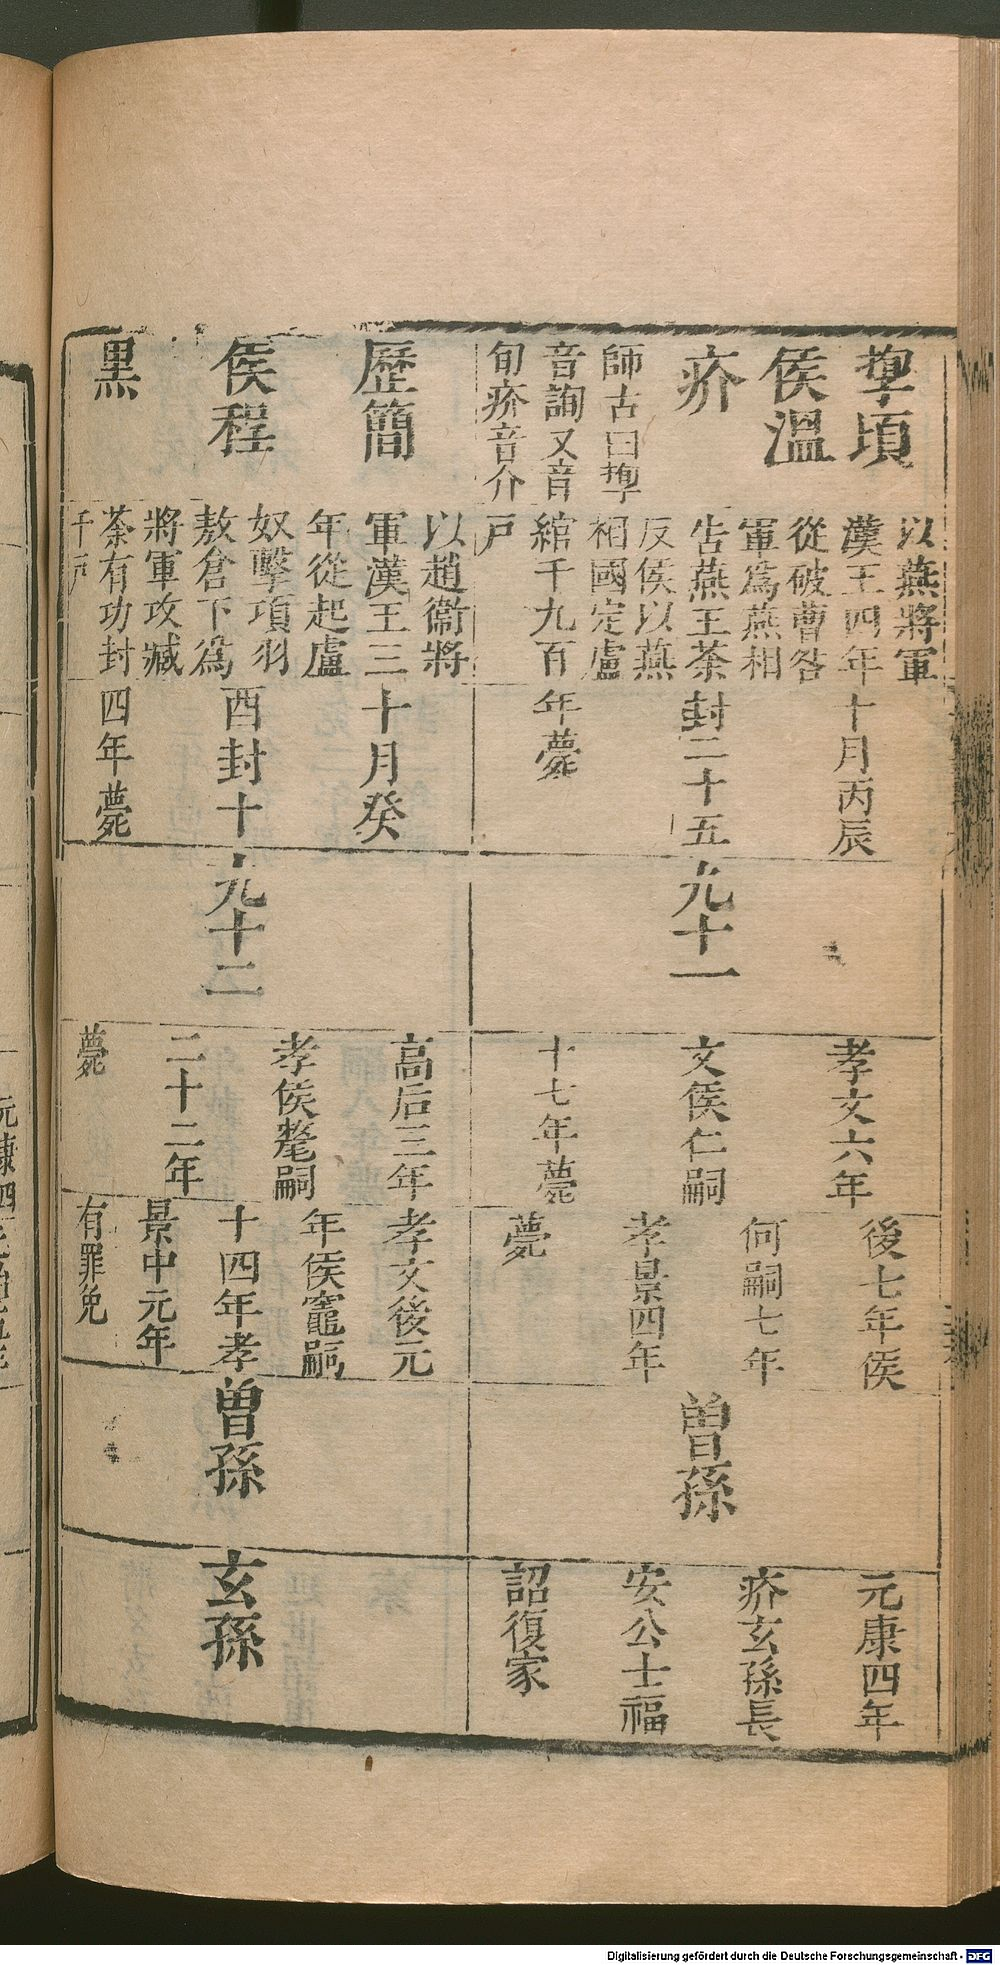 㧦頃
侯溫
疥
師古曰㧦
音詢又音
旬疥音介
以燕將軍
漢王四年
從破曹咎
軍爲燕相
告燕王荼
反侯以燕
相國定盧
綰千九百
戶
十月丙辰
封二十五
年薨
九十一
孝文六年
文侯仁嗣
十七年薨
後七年侯
何嗣七年
孝景四年
薨
曾孫
元康四年
疥玄孫長
安公士福
詔復家
歷簡
侯程
黒
以趙衞將
軍漢王三
年從起盧
奴擊項羽
敖倉下爲
將軍攻臧
荼有功封
千戶
十月癸
酉封十
四年薨
九十二
高后三年
孝侯氂嗣
二十二年
薨
孝文後元
年侯竈嗣
十四年孝
景中元年
有罪免
曾孫
玄孫
Digitalisierung gefördert durch die Deutsche Forschungsgemeinschaft - DFG